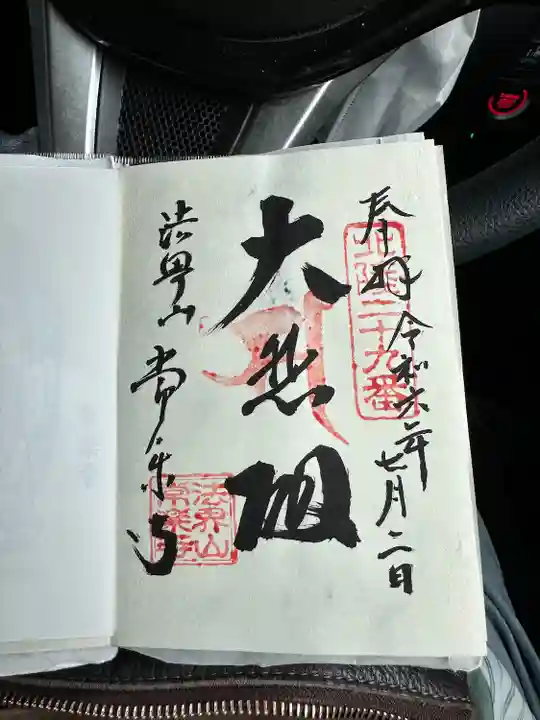 奉拝 令和六年七月二日
北陸二十九番
大悲
法界山 常楽寺
法界山
常楽寺